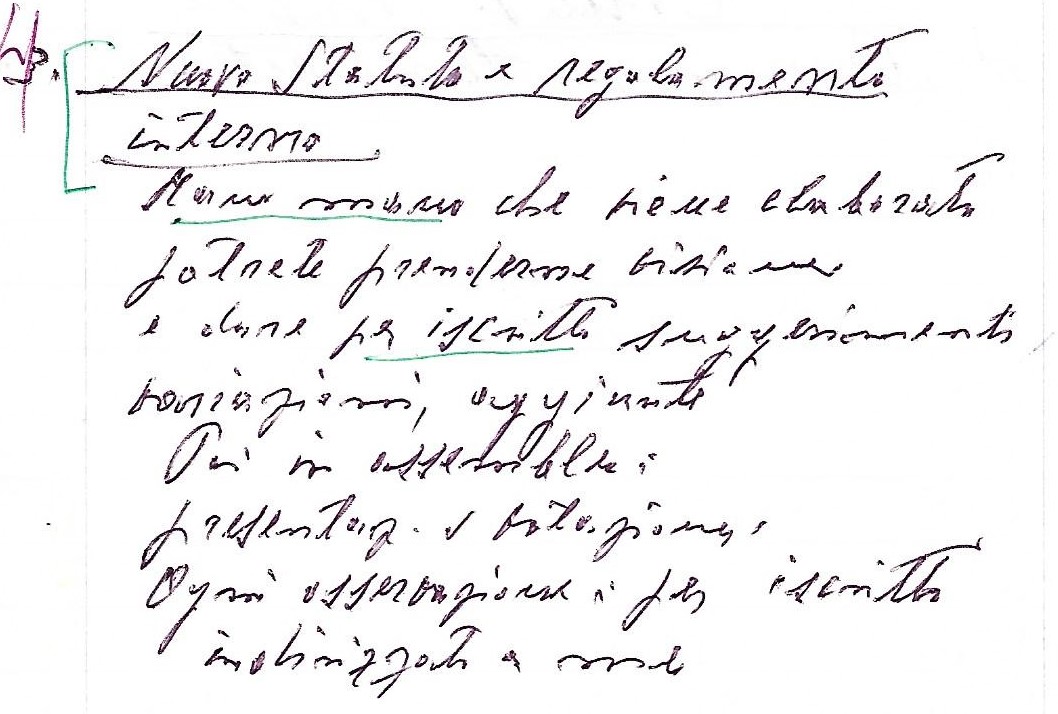 4.
Nuovo Statuto e regolamento
interno.
Mano mano che viene elaborato
potrete prenderne visione
e dare per iscritto suggerimenti
variazioni, aggiunte
Poi in assemblea:
presentaz. e votazione.
Ogni osservazione: per iscritto
indirizzata a me